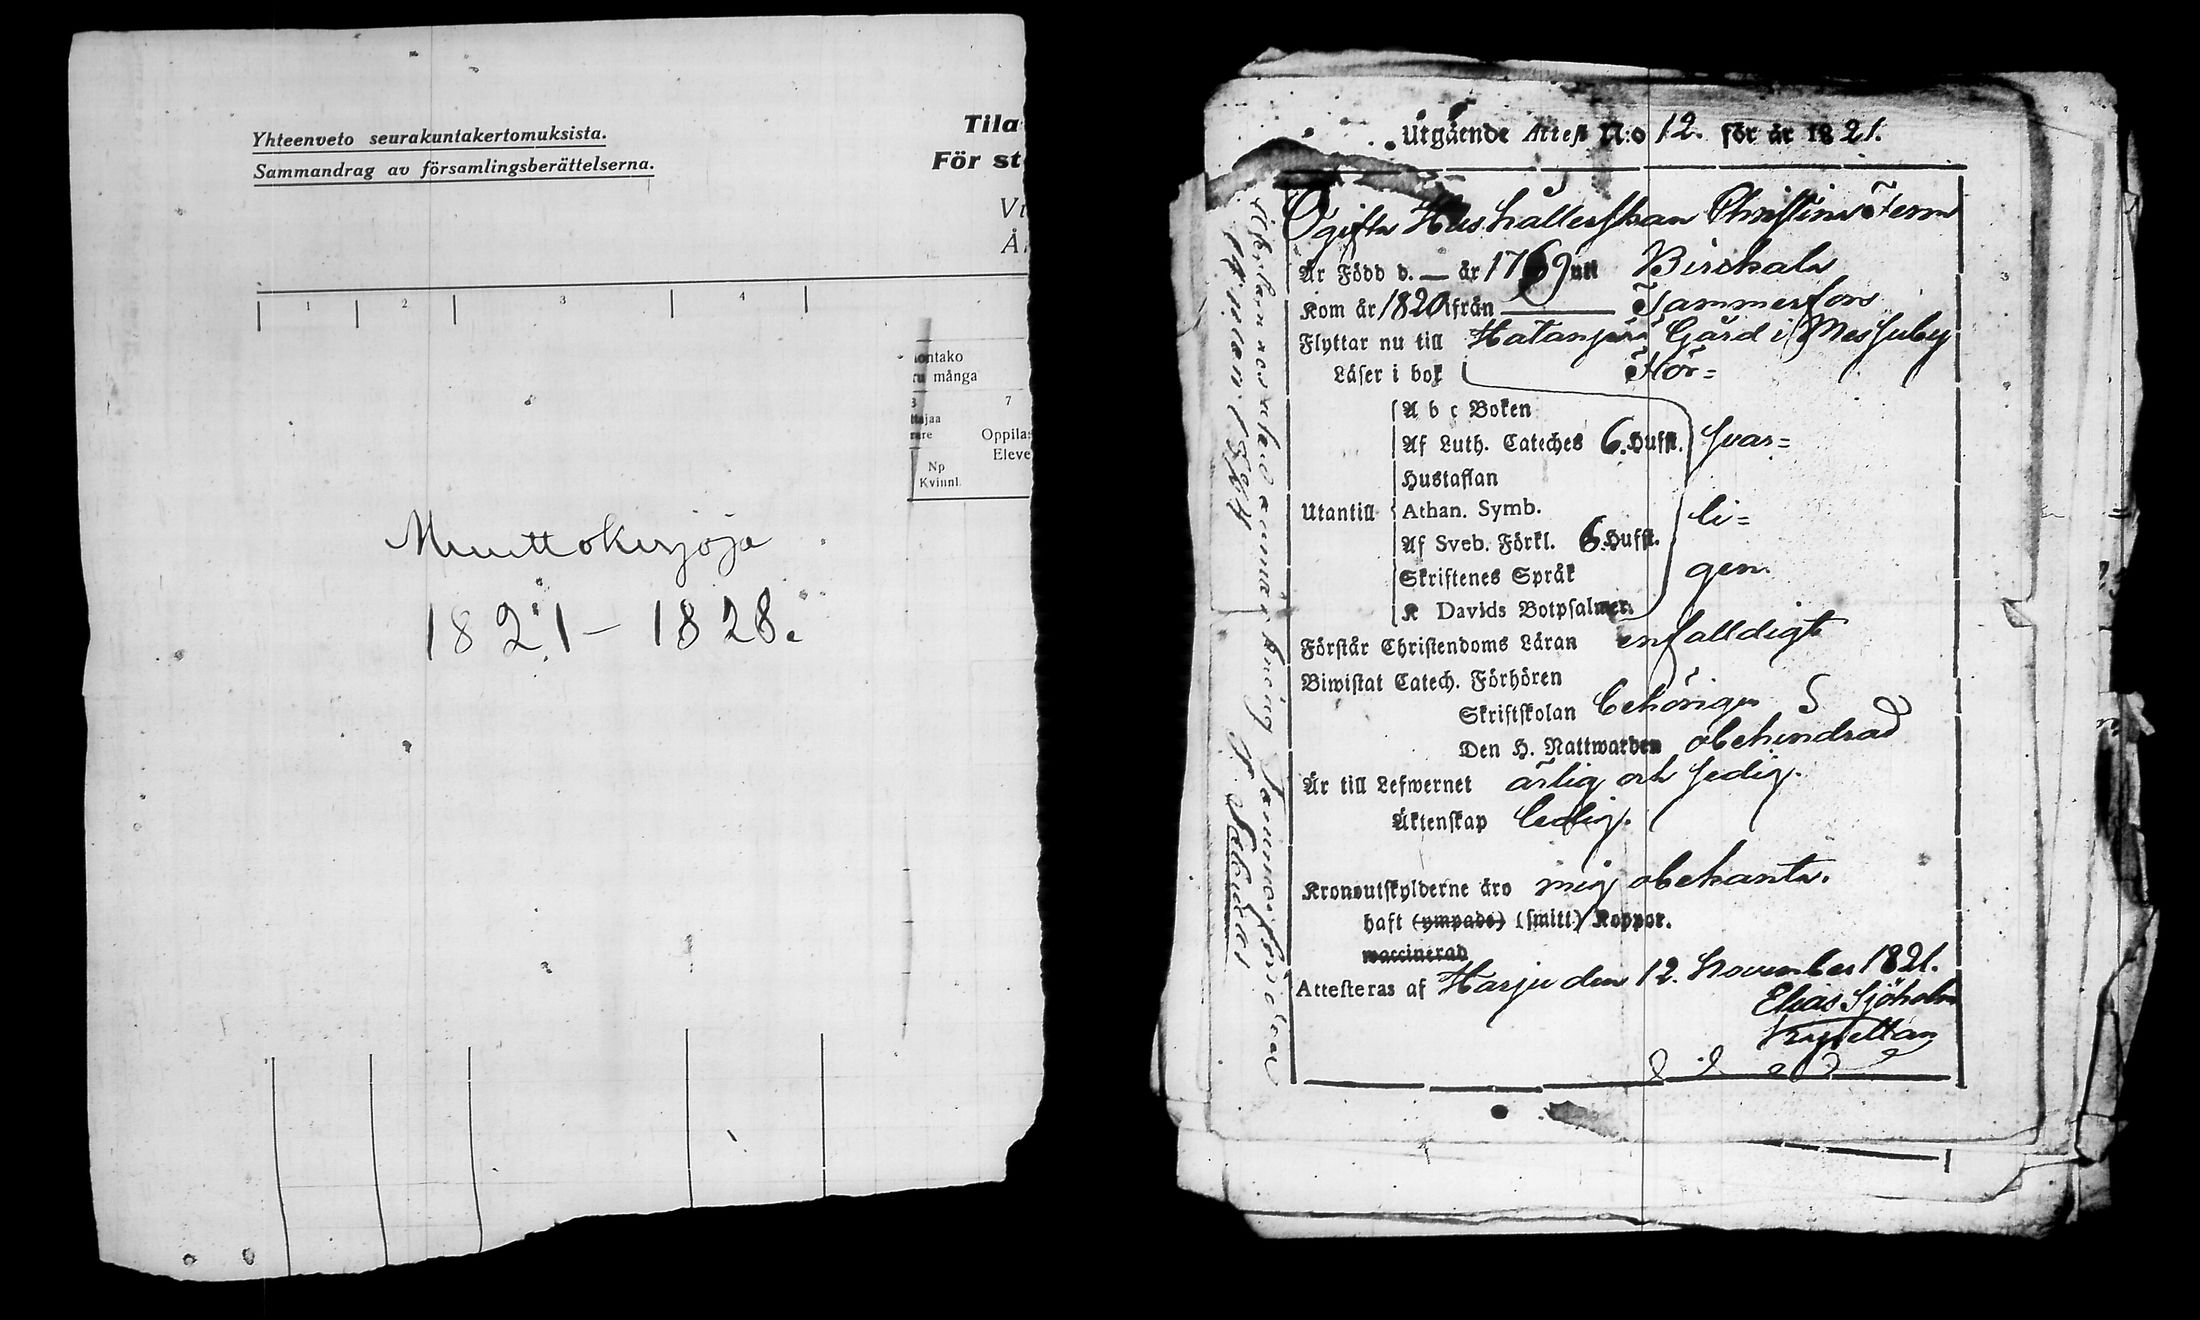 Yhteenveto seurakuntakertomuksista.
Sammandrag av församlingsberättelserna.
Tila
För st
1 2 3 4
ontako
ru många
3 7
ttajaa
rare
Oppila
Eleve
Np
Kvinnl.
Muuttokirjoja
1821-1828.
Utgående Attest N:o 12. för år 1821.
Ogifta Hushållerskan Christina Fern
Är Född d. — år 176 uti Birckala
Kom år 1820 ifrån Tammerfors
Flyttar nu till Hatanpää Gård i Messuby
Läser i bok För=
A b c Boken
Af Luth. Cateches 6. Hufst. svar=
Hustaflan
Utantill Athan. Symb.
li=
Af Sveb. Förkl. 6. Hufst.
Skriftenes Språk gen.
K Davids Botpsalmer.
Förstår Christendoms Läran enfalldigt
Biwistat Catech. Förhören
Skriftskolan behörigen
Den H. Nattwarden obehindrad
Är till Lefwernet ärlig och sedig.
Äktenskap ledig.
Kronoutskylderne äro mig obekanta.
haft (ympade) (smitt) Koppor.
waccinerad
Attesteras af Harju den 12. November 1821.
Elias Sjöholm